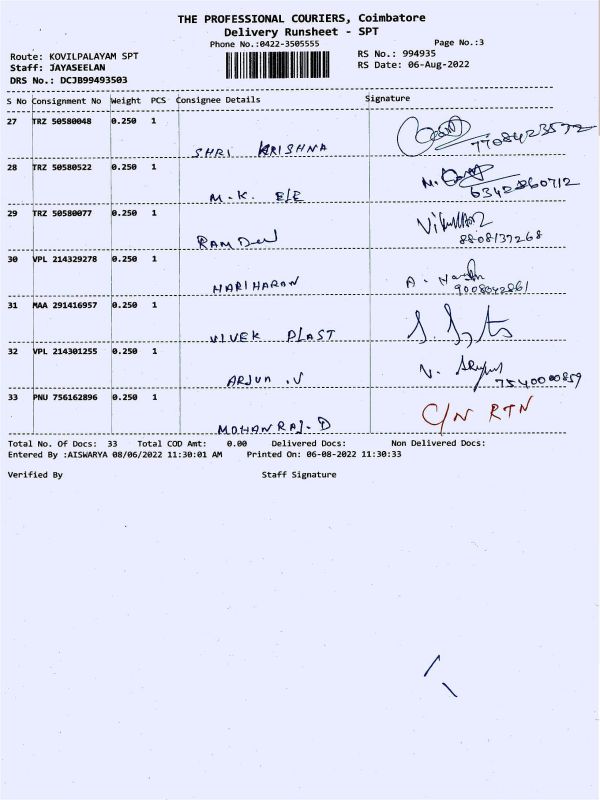 THE PROFESSIONAL COURIERS, Coimbatore
Delivery Runsheet - SPT
Phone No.:0422-3505555 Page No.:3
Route: KOVILPALAYAM SPT RS No.: 994935
Staff: JAYASEELAN RS Date: 06-Aug-2022
DRS No.: DCJB99493503
S No Consignment No Weight PCS Consignee Details Signature
27 TRZ 50580048 0.250 1
SHRI KRISHNA 7708423572
28 TRZ 50580522 0.250 1
M.K. ELE
29 TRZ 50580077 0.250 1
RAM 8808137268
30 VPL 214329278 0.250 1
HARIHARAN A.
31 MAA 291416957 0.250 1
VIVEK PLAST
32 VPL 214301255 0.250 1
ARJUN .V 7540000859
33 PNU 756162896 0.250 1 C/N RTN
MOHANRAJ.D
Total No. Of Docs: 33 Total COD Amt: 0.00 Delivered Docs: Non Delivered Docs:
Entered By :AISWARYA 08/06/2022 11:30:01 AM Printed On: 06-08-2022 11:30:33
Verified By Staff Signature